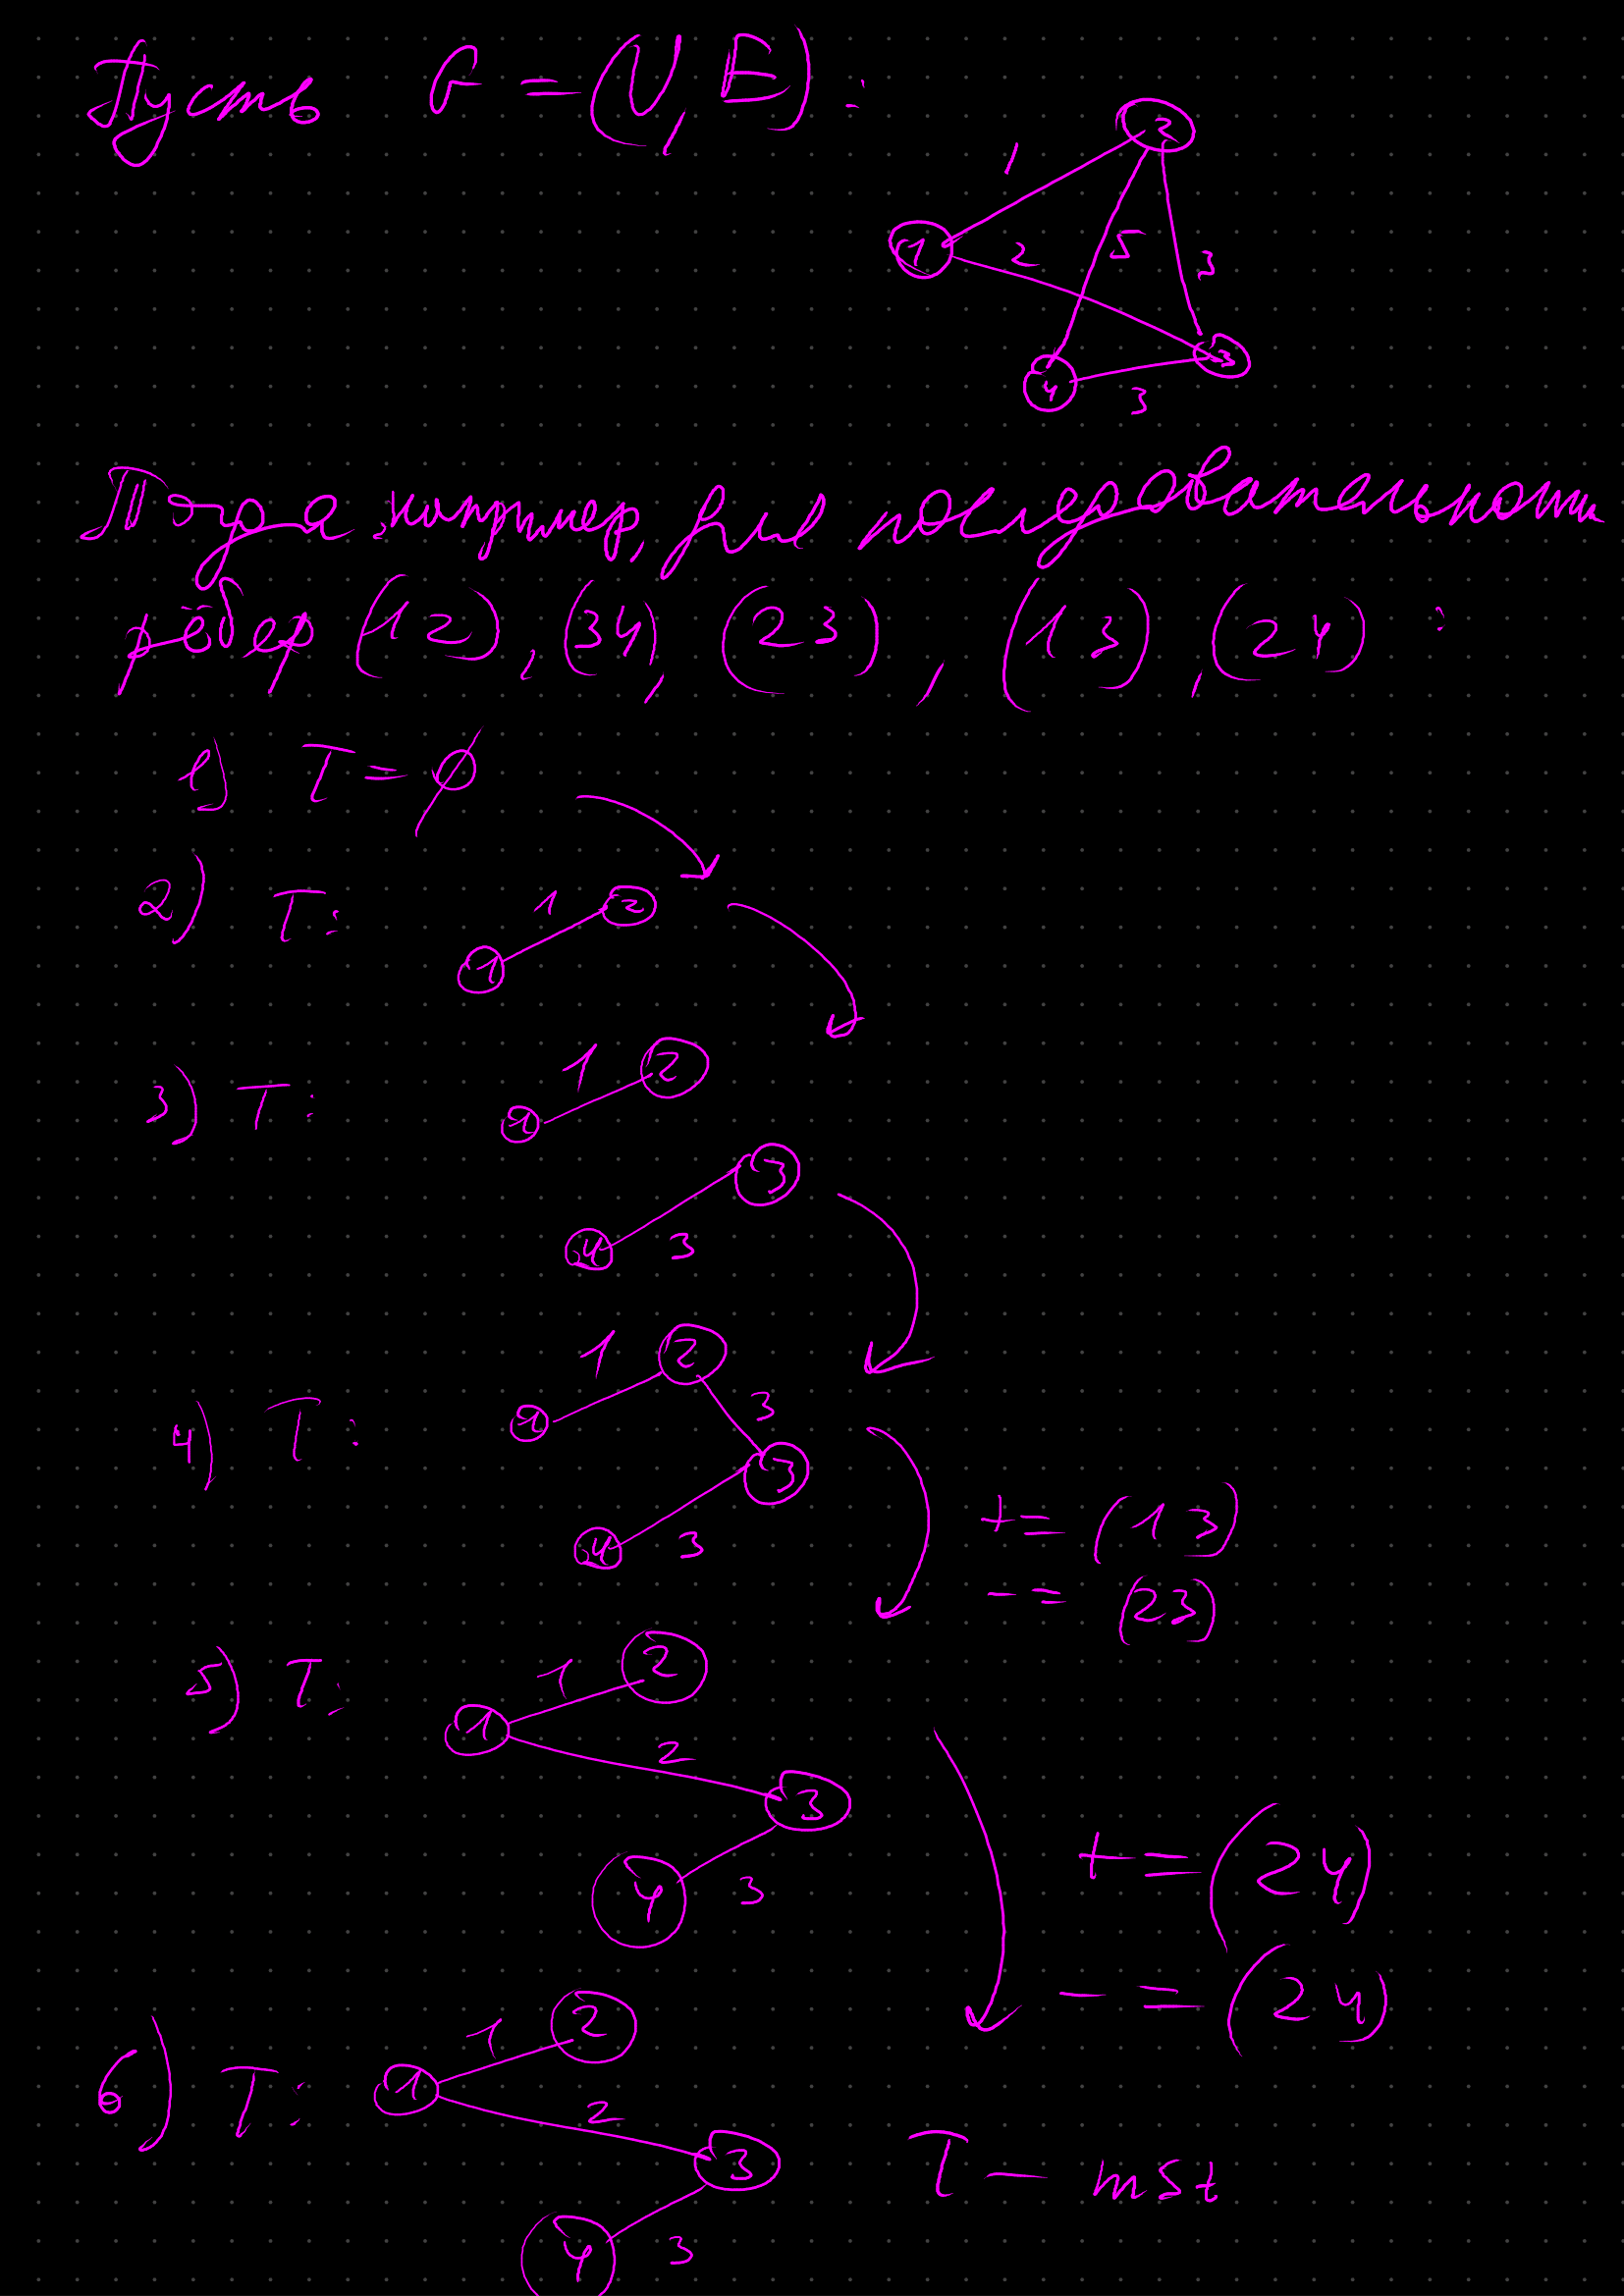 Пусть G = (V, E):
1
2
1
2
5
3
3
4
3
Тогда, например, для последовательности
рёбер (1 2), (34), (23), (1 3), (24):
1) T = ∅
2) T: 1 2
1
3) T: 1 2
1
3
4 3
4) T: 1 2
1 3
3
4 3
+= (1 3)
-= (23)
5) T: 1 2
1 2
3
4 3
+= (24)
-= (24)
6) T: 1 2
1 2
3
T - mst
4 3